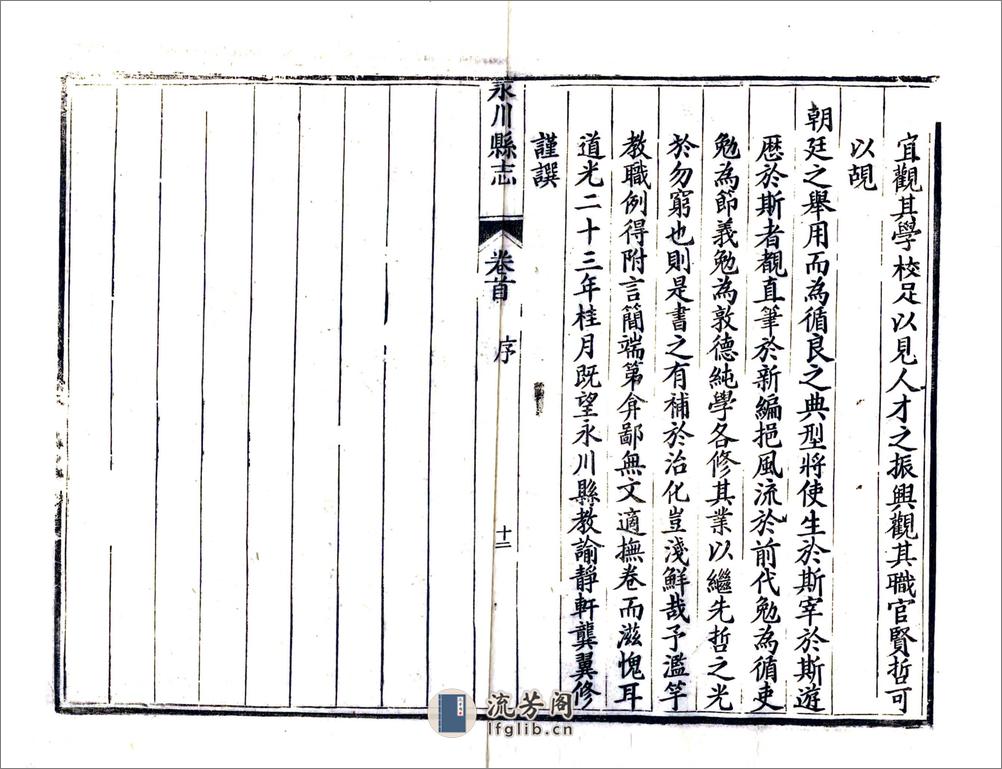 宜觀其學校足以見人才之振興觀其職官賢哲可
以覘
朝廷之舉用而為循良之典型將使生於斯宰於斯遊
歷於斯者覩直筆於新編挹風流於前代勉為循吏
勉為節義勉為敦德純學各修其業以繼先哲之光
於勿窮也則是書之有補於治化豈淺鮮哉予濫竽
教職例得附言簡端第弇鄙無文適撫卷而滋愧耳
道光二十三年桂月既望永川縣教諭靜軒龔翼修
謹譔
永川縣志
卷首
序
十二
流芳阁
lfglib.cn